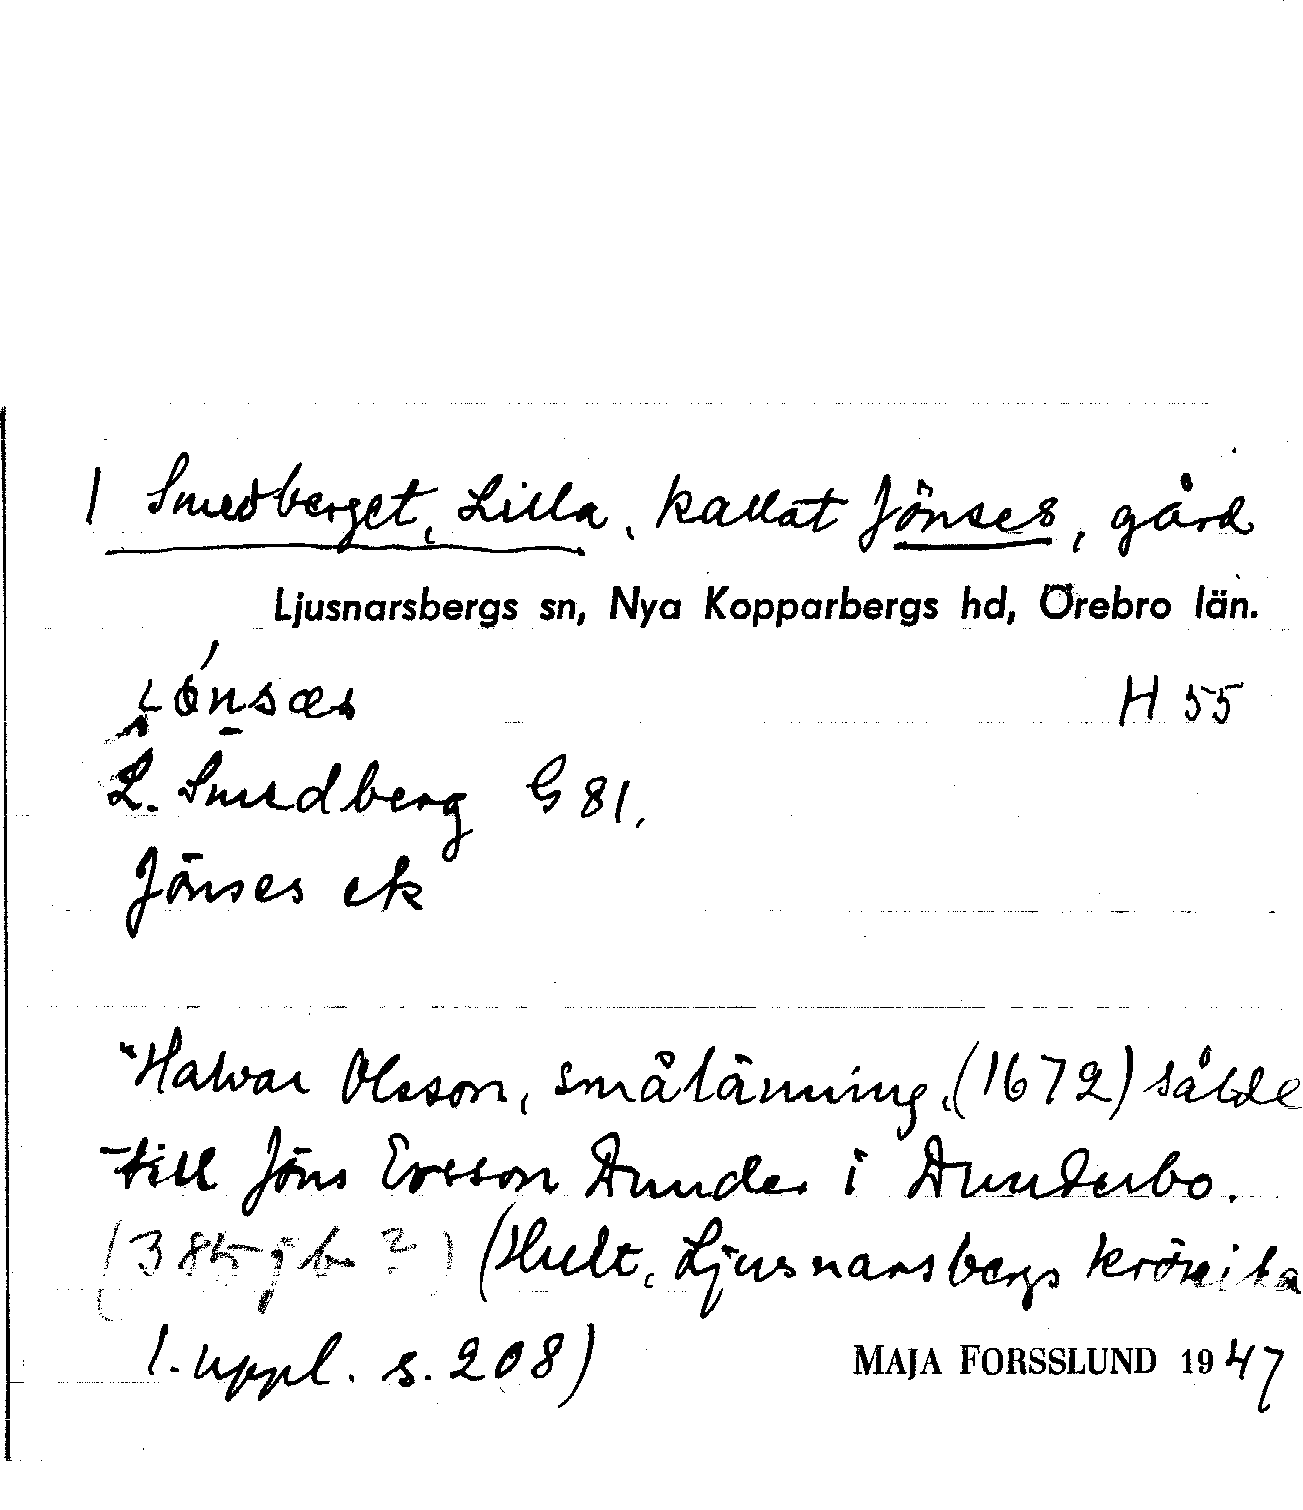 1 Smedberget, Lilla, kallat Jönses, gård
Ljusnarsbergs sn, Nya Kopparbergs hd, Örebro län.
H 55
L. Smedberg G 81.
Jönses ek
"Halvar Olsson, smålänning, (1672) sålde
till Jöns Ersson Dunder i Dunderbo.
(Hult, Ljusnarsbergs krönika
1. uppl. s. 208)
MAJA FORSSLUND 1947